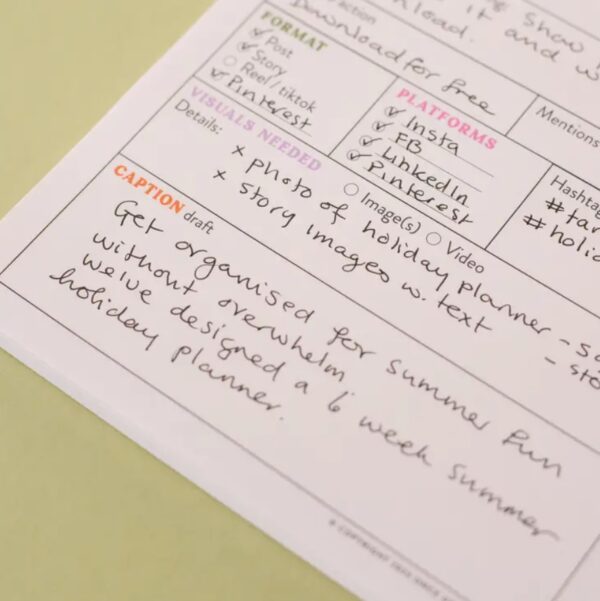 Show
it and w
nload.
action
Download for free
FORMAT
Post
Story
Reel / tiktok
Pinterest
PLATFORMS
Insta
FB
LinkedIn
Pinterest
Mentions
Hashtag
#tar
#holid
VISUALS NEEDED
Image(s)
Video
Details:
x photo of holiday planner - s
x story images w. text - sto
CAPTION draft
Get organised for summer fun
without overwhelm
we've designed a 6 week summer
holiday planner.
© COPYRIGHT